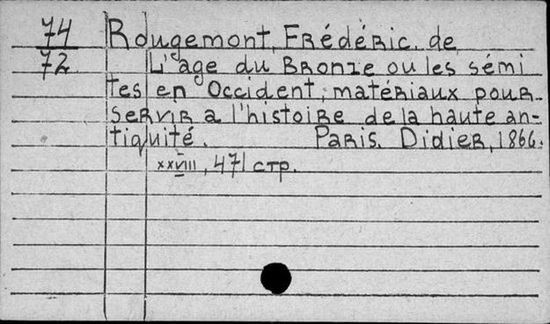 74 Rougemont, Frédéric. de
72 L'age du Bronze ou les sémi
tes en Occident; matériaux pour
servir a l'histoire de la haute an-
tiquité. Paris. Didier, 1866.
xxviii, 471 стр.